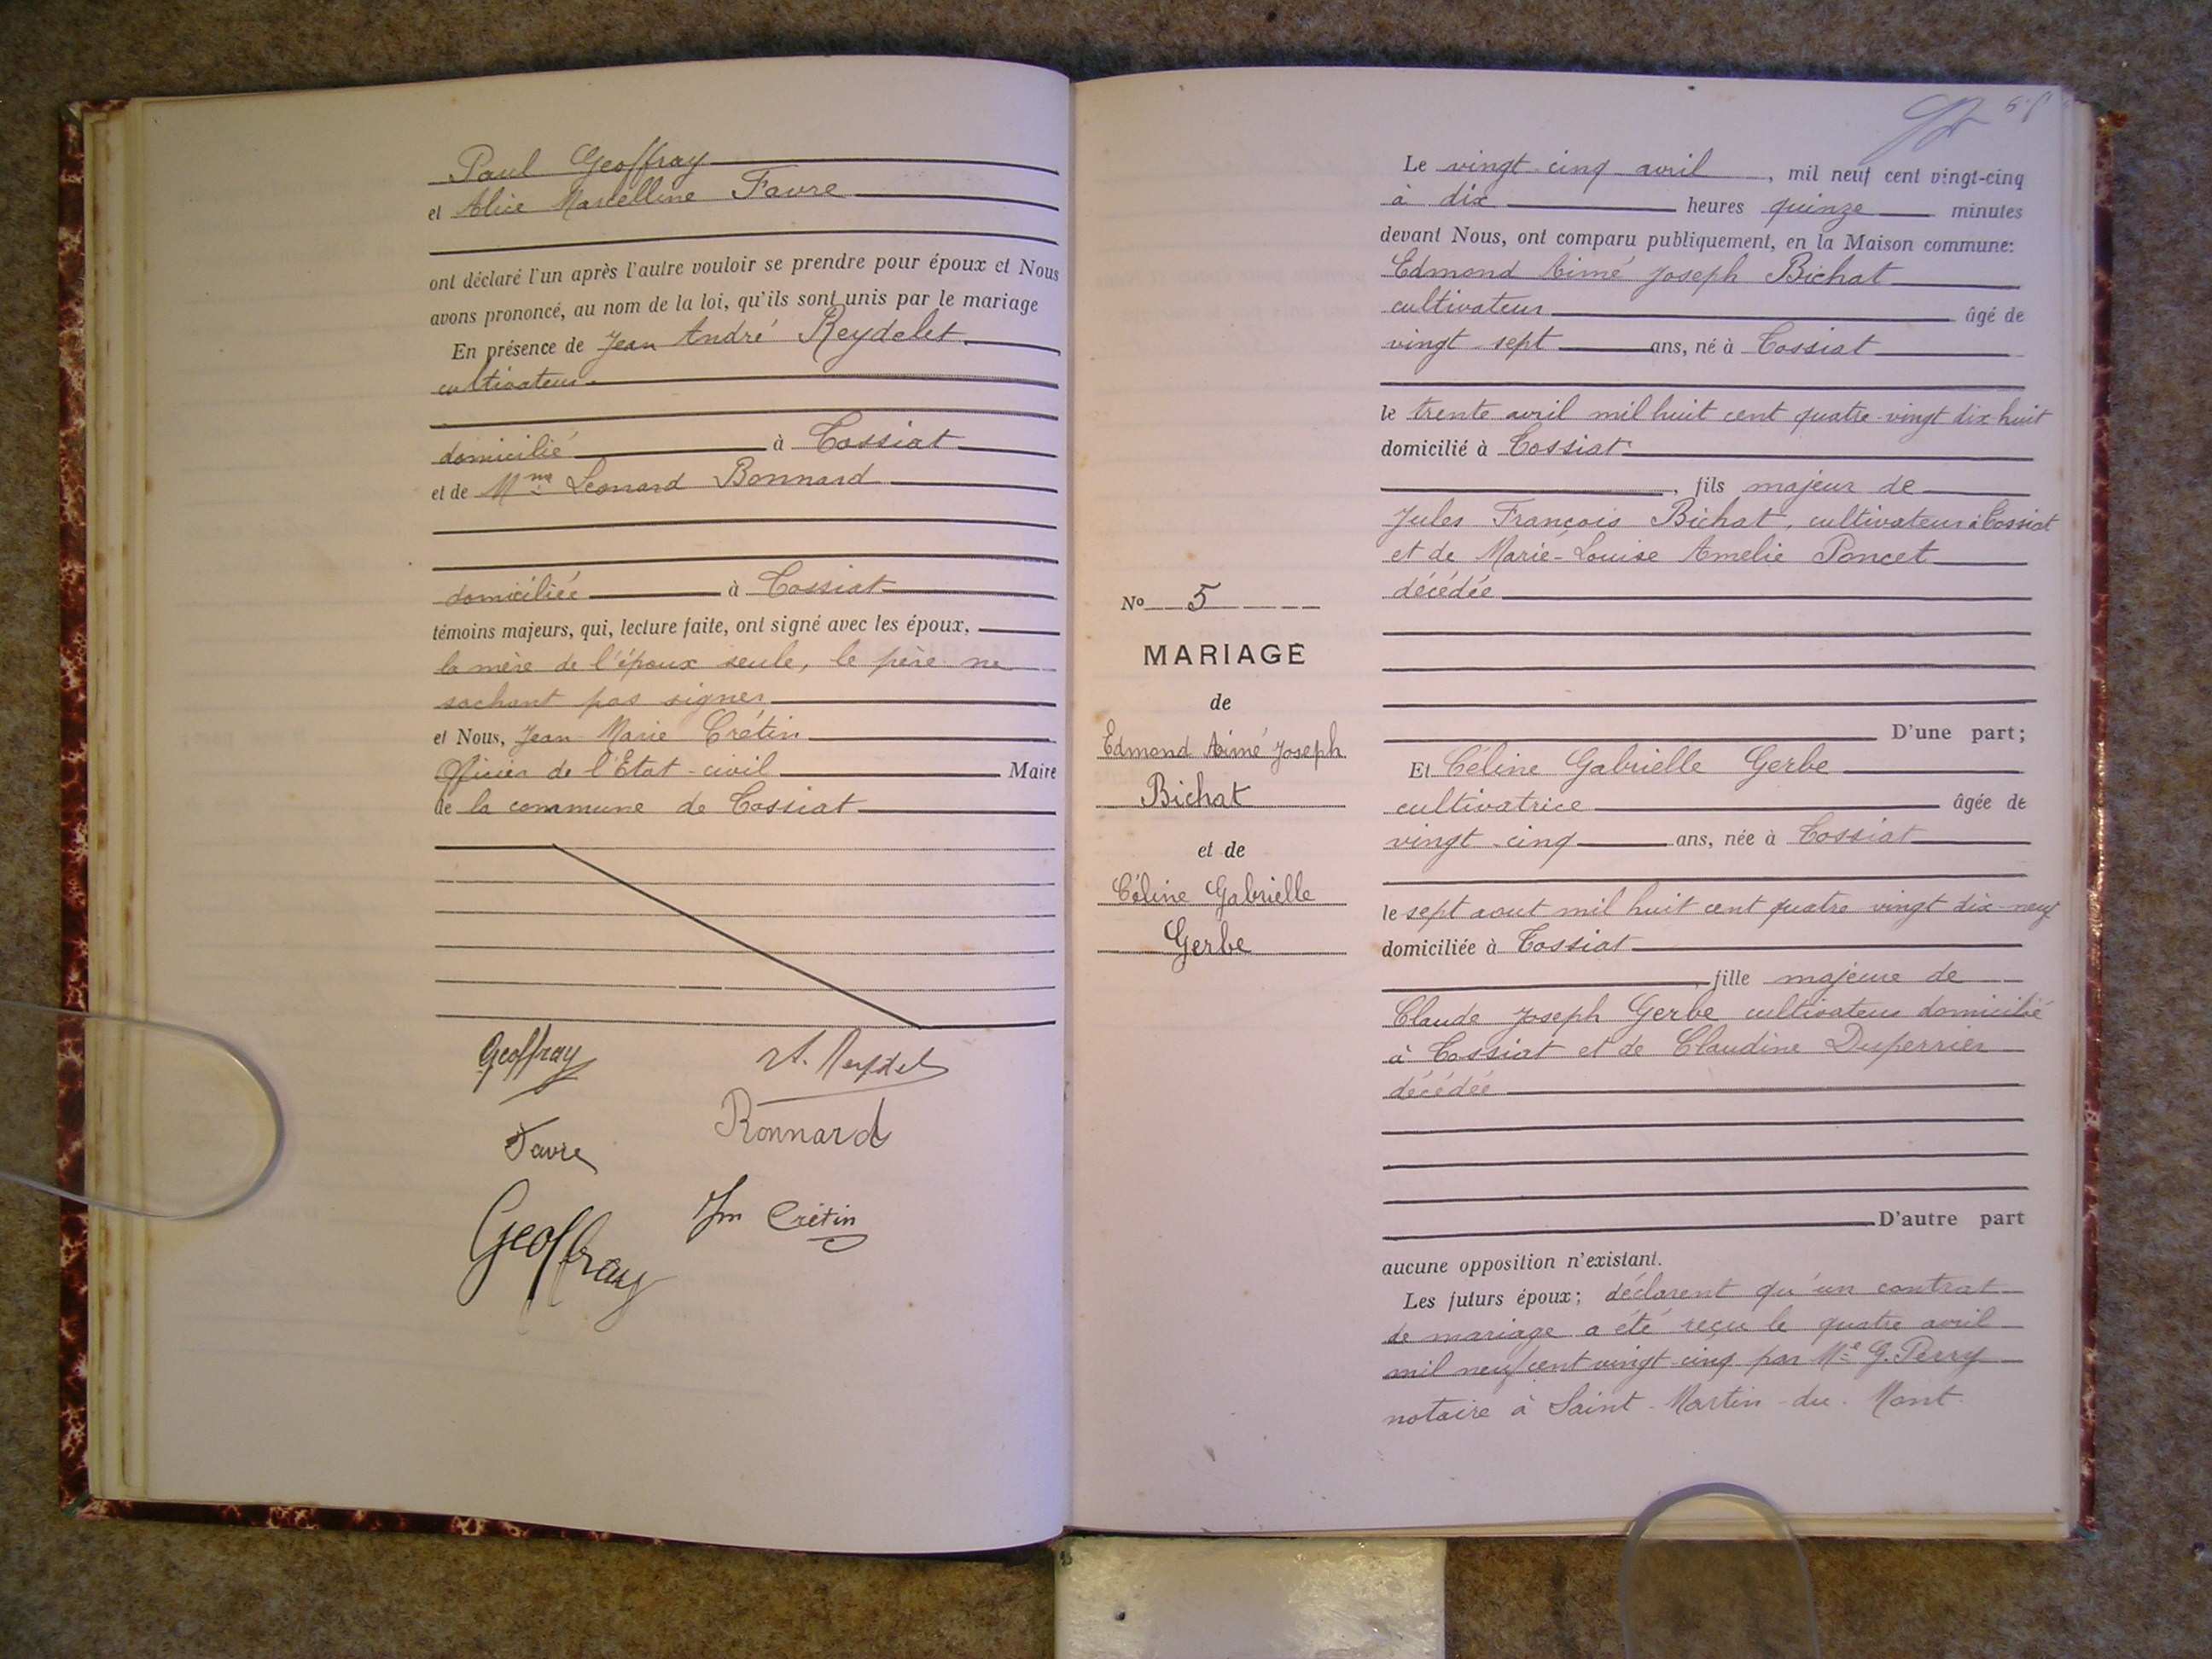 Paul Geoffray
et Alice Marcelline Favre
ont déclaré l'un après l'autre vouloir se prendre pour époux et Nous
avons prononcé, au nom de la loi, qu'ils sont unis par le mariage
En présence de Jean André Reydelet.
cultivateur
domicilié à Tossiat
et de Mme Leonard Bonnard
domiciliée à Tossiat
témoins majeurs, qui, lecture faite, ont signé avec les époux,
la mère de l'époux seule, le père ne
sachant pas signer
et Nous, Jean Marie Crétin
Officier de l'Etat-civil Maire
de la commune de Tossiat
Geoffray
Favre
Bonnard
Geoffray
Jm Crétin
Le vingt-cinq avril, mil neuf cent vingt-cinq
à dix heures quinze minutes
devant Nous, ont comparu publiquement, en la Maison commune:
Edmond Aimé Joseph Bichat
cultivateur âgé de
vingt sept ans, né à Tossiat
le trente avril mil huit cent quatre-vingt dix-huit
domicilié à Tossiat
, fils majeur de
Jules François Bichat, cultivateur à Tossiat
et de Marie-Louise Amelie Poncet
décédée
D'une part;
No 5
MARIAGE
de
Edmond Aimé Joseph
Bichat
et de
Céline Gabrielle
Gerbe
Et Céline Gabrielle Gerbe
cultivatrice âgée de
vingt-cinq ans, née à Tossiat
le sept aout mil huit cent quatre vingt dix-neuf
domiciliée à Tossiat
, fille majeure de
Claude Joseph Gerbe cultivateur domicilié
à Tossiat et de Claudine Duperrier
décédée
D'autre part
aucune opposition n'existant.
Les futurs époux; déclarent qu'un contrat
de mariage a été reçu le quatre avril
mil neuf cent vingt-cinq par Me G. Perry
notaire à Saint-Martin-du-Mont